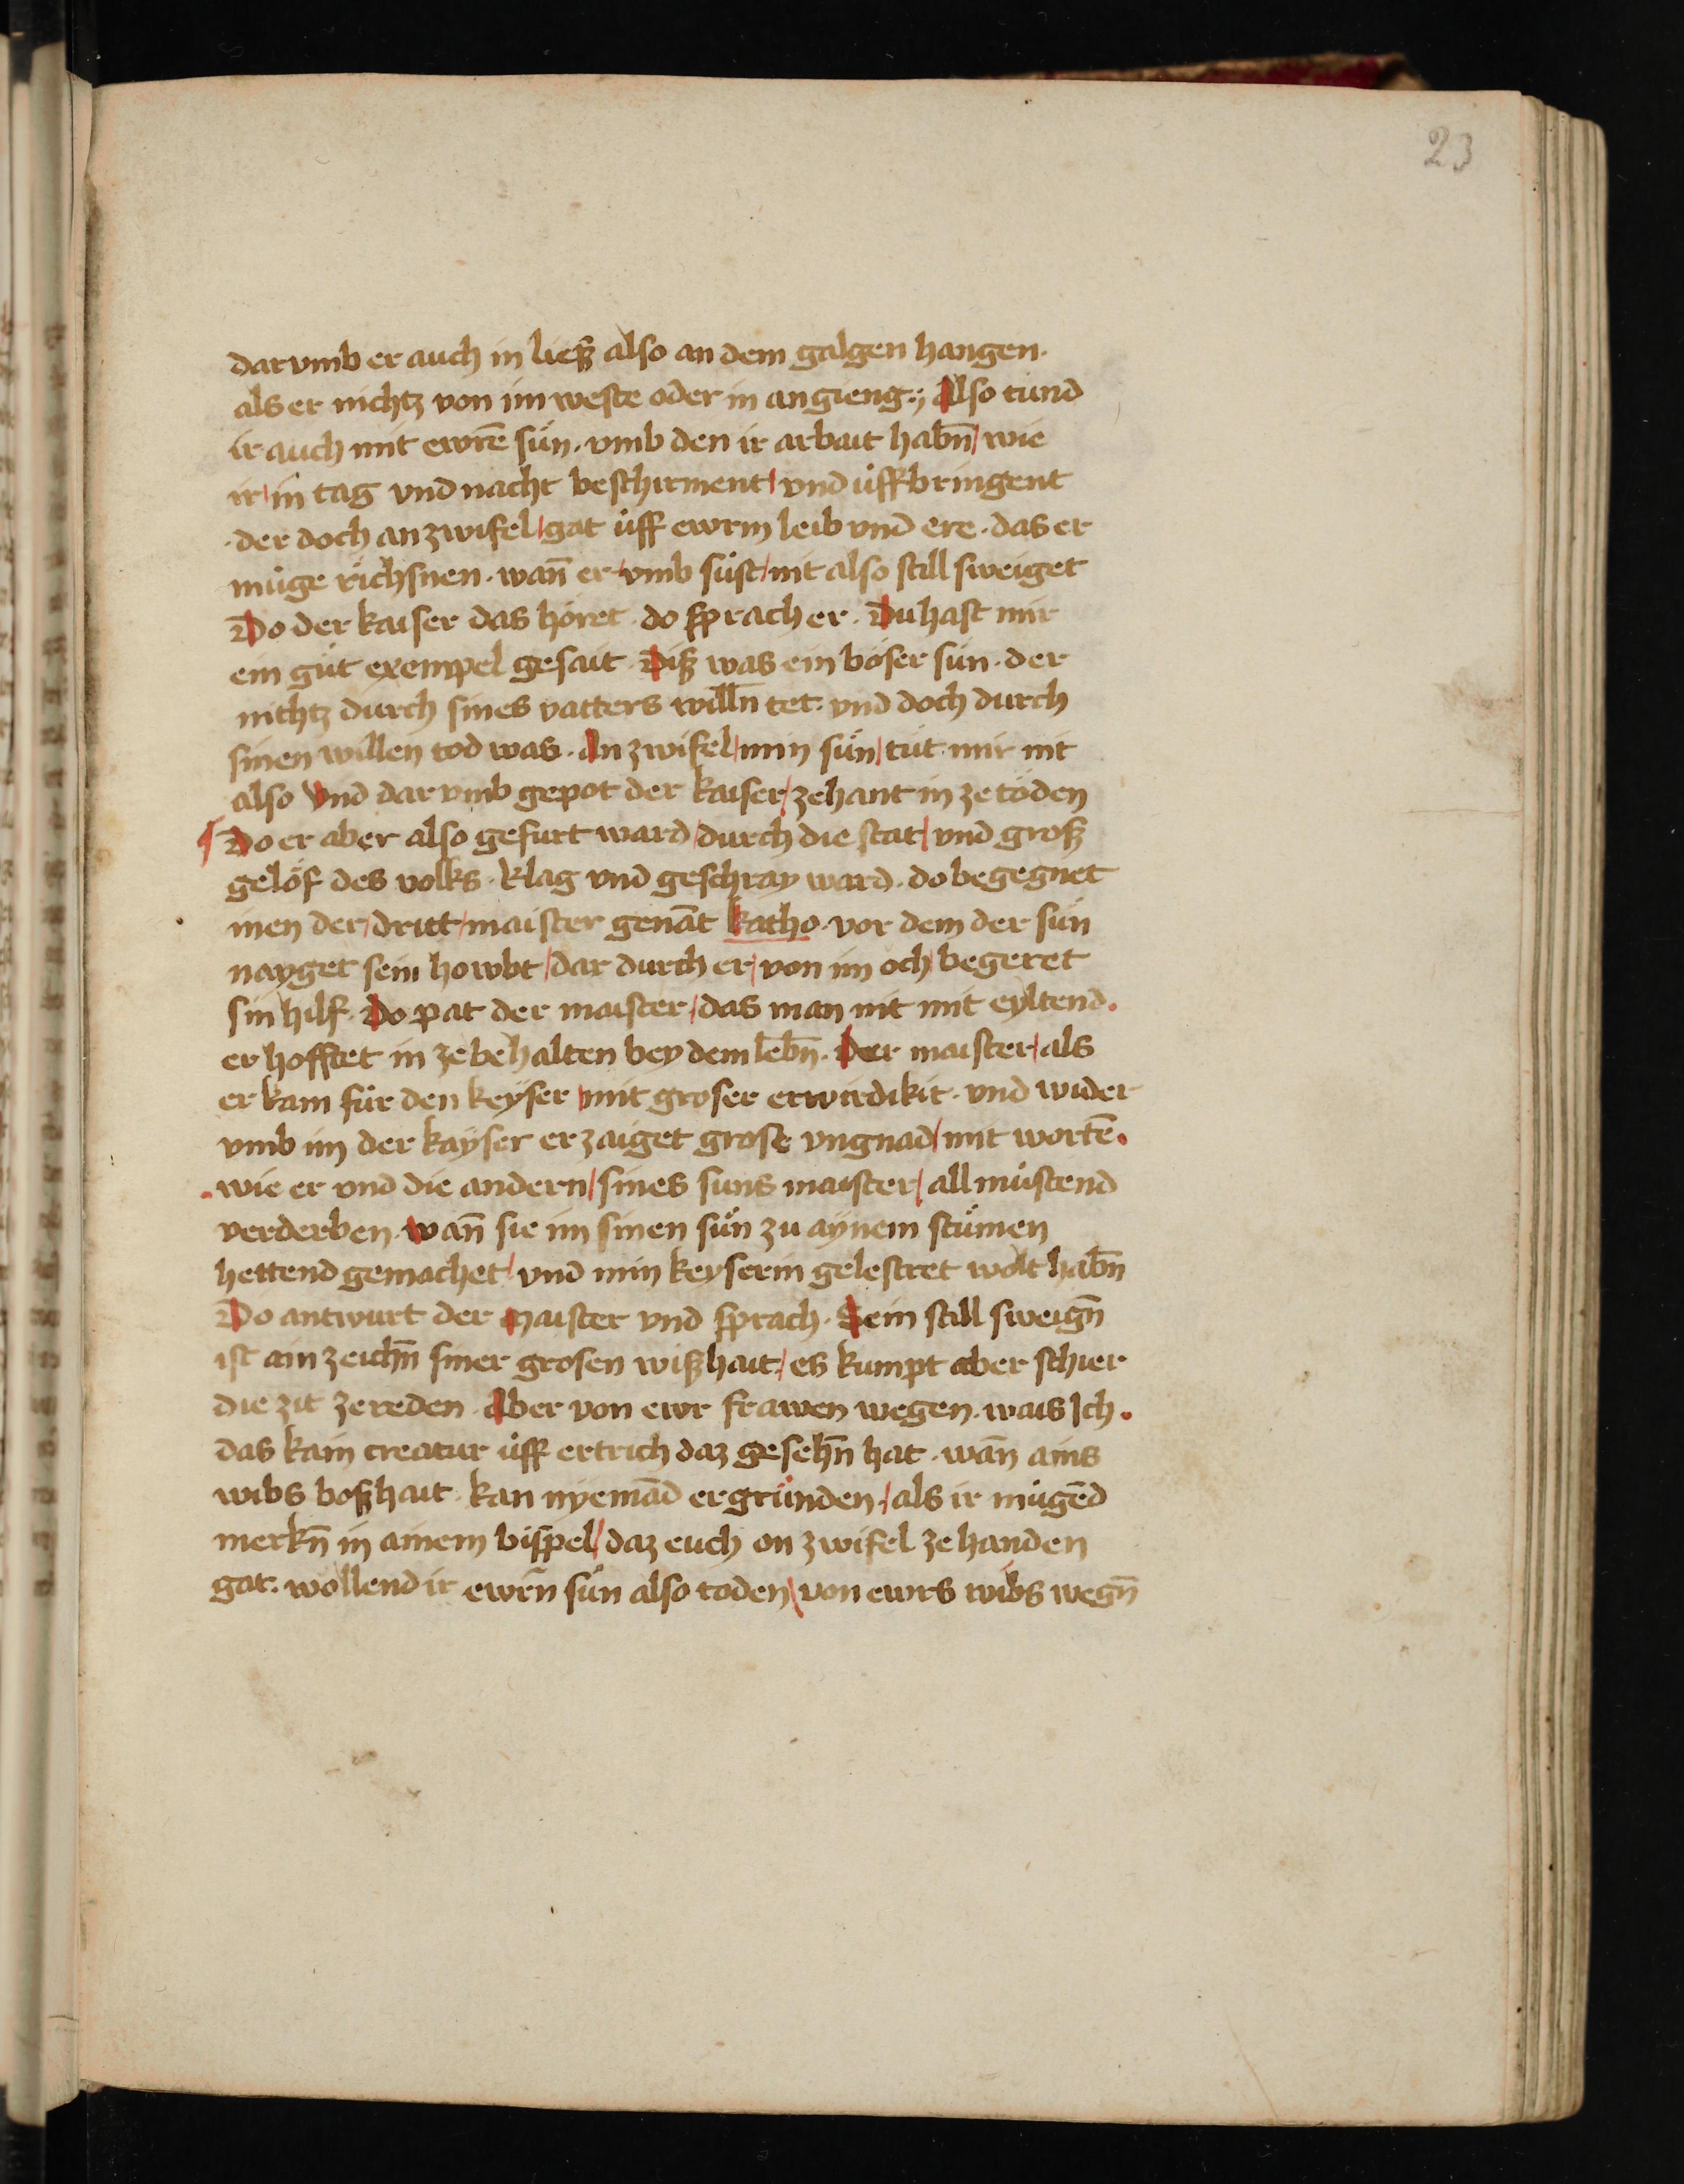 23
dar vmb er auch in ließ also an dem galgen hangen.
als er nichtz von im weste oder in an gieng.; Also tund
ir auch mit ewrē sün. vmb den ir arbait habn̄ / wie
ir / in tag vnd nacht beschirment / vnd üffbringent
.der doch an zwifel / gat üff ewrm leib vnd ere. das er
müge richsnen. wan̄ er / vmb süst / nit also still sweiget
Do der kaiser das höret. do sprach er. Du hast mir
ein güt exempel gesait. Diß was ein böser sün. der
nichtz durch sines vatters willn̄ tet. vnd doch durch
sinen willen tod was. An zwifel / min sün / tüt mir nit
also Vnd dar vmb gepot der kaiser / zehant in ze töden
¶ Do er aber also gefurt ward / durch die stat / vnd groß
gelöf des volks. klag vnd geschray ward. do begegnet
men der / dritt / maister genāt katho. vor dem der sün
nayget sein howbt / dar durch er / von im och / begeret
sin hilf. Do pat der maister / das man nit mit eyltend.
er hofftet in ze behalten bey dem lebn̄. Der maister / als
er kam für den keyser / mit groser erwirdikit. vnd wider
vmb im der kayser er zaiget grose vngnad / mit wortē.
.wie er vnd die andern / sines suns maister / all müstend
verderben. wan̄ sie im sinen sün zu aynem stümen
hettend gemachet / vnd min keyserin gelestret wolt habn̄
Do antwurt der maister vnd sprach. Sein still sweign̄
ist ain zeichn̄ siner grosen wißhait / es kumpt aber schier
die zit ze reden. Aber von ewr frawen wegen. wais Ich.
das kain creatur üff ertrich daz gesehn̄ hat. wan̄ ains
wibs boßhait. kan nyemād ergründen. / als ir mügēd
merkn̄ in ainem bispel / daz euch on zwifel ze handen
gat. wollend ir ewrn̄ sün also toden / von ewrs wibs wegn̄